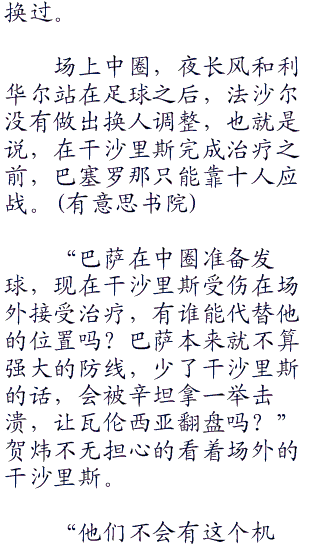 换过。
场上中圈，夜长风和利
华尔站在足球之后，法沙尔
没有做出换人调整，也就是
说，在干沙里斯完成治疗之
前，巴塞罗那只能靠十人应
战。(有意思书院)
“巴萨在中圈准备发
球，现在干沙里斯受伤在场
外接受治疗，有谁能代替他
的位置吗？巴萨本来就不算
强大的防线，少了干沙里斯
的话，会被辛坦拿一举击
溃，让瓦伦西亚翻盘吗？”
贺炜不无担心的看着场外的
干沙里斯。
“他们不会有这个机